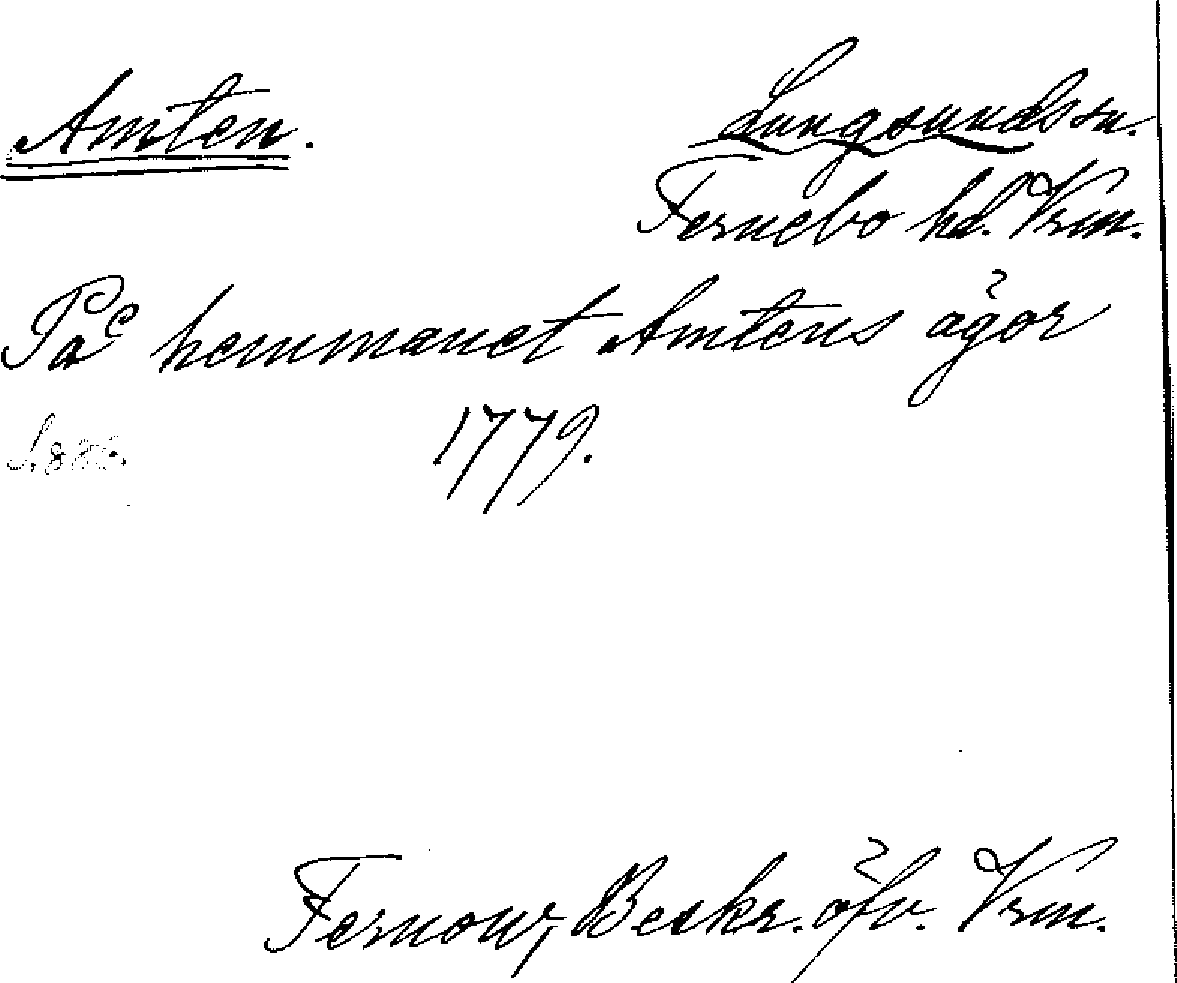 Amten.
Lungsunds sn.
Fernebo hd. Vrm.
På hemmanet Amtens ägor
1779.
Fernow, Beskr. öfv. Vrm.